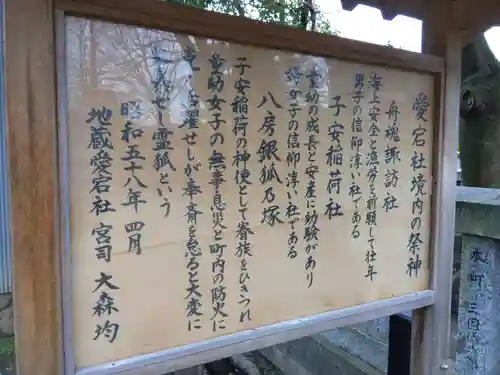 愛宕社境内の祭神
舟魂諏訪社
海上安全と漁労を祈願して壮年
男子の信仰淳い社である
子安稲荷社
童幼の成長と安産に効験があり
婦女子の信仰淳い社である
八房銀狐乃塚
子安稲荷の神使として眷族をひきつれ
童幼女子の無事息災と町内の防火に
活躍せしが奉斎を怠ると大変
義せし霊狐という
昭和五十八年四月
地蔵愛宕社宮司大森均
本町三